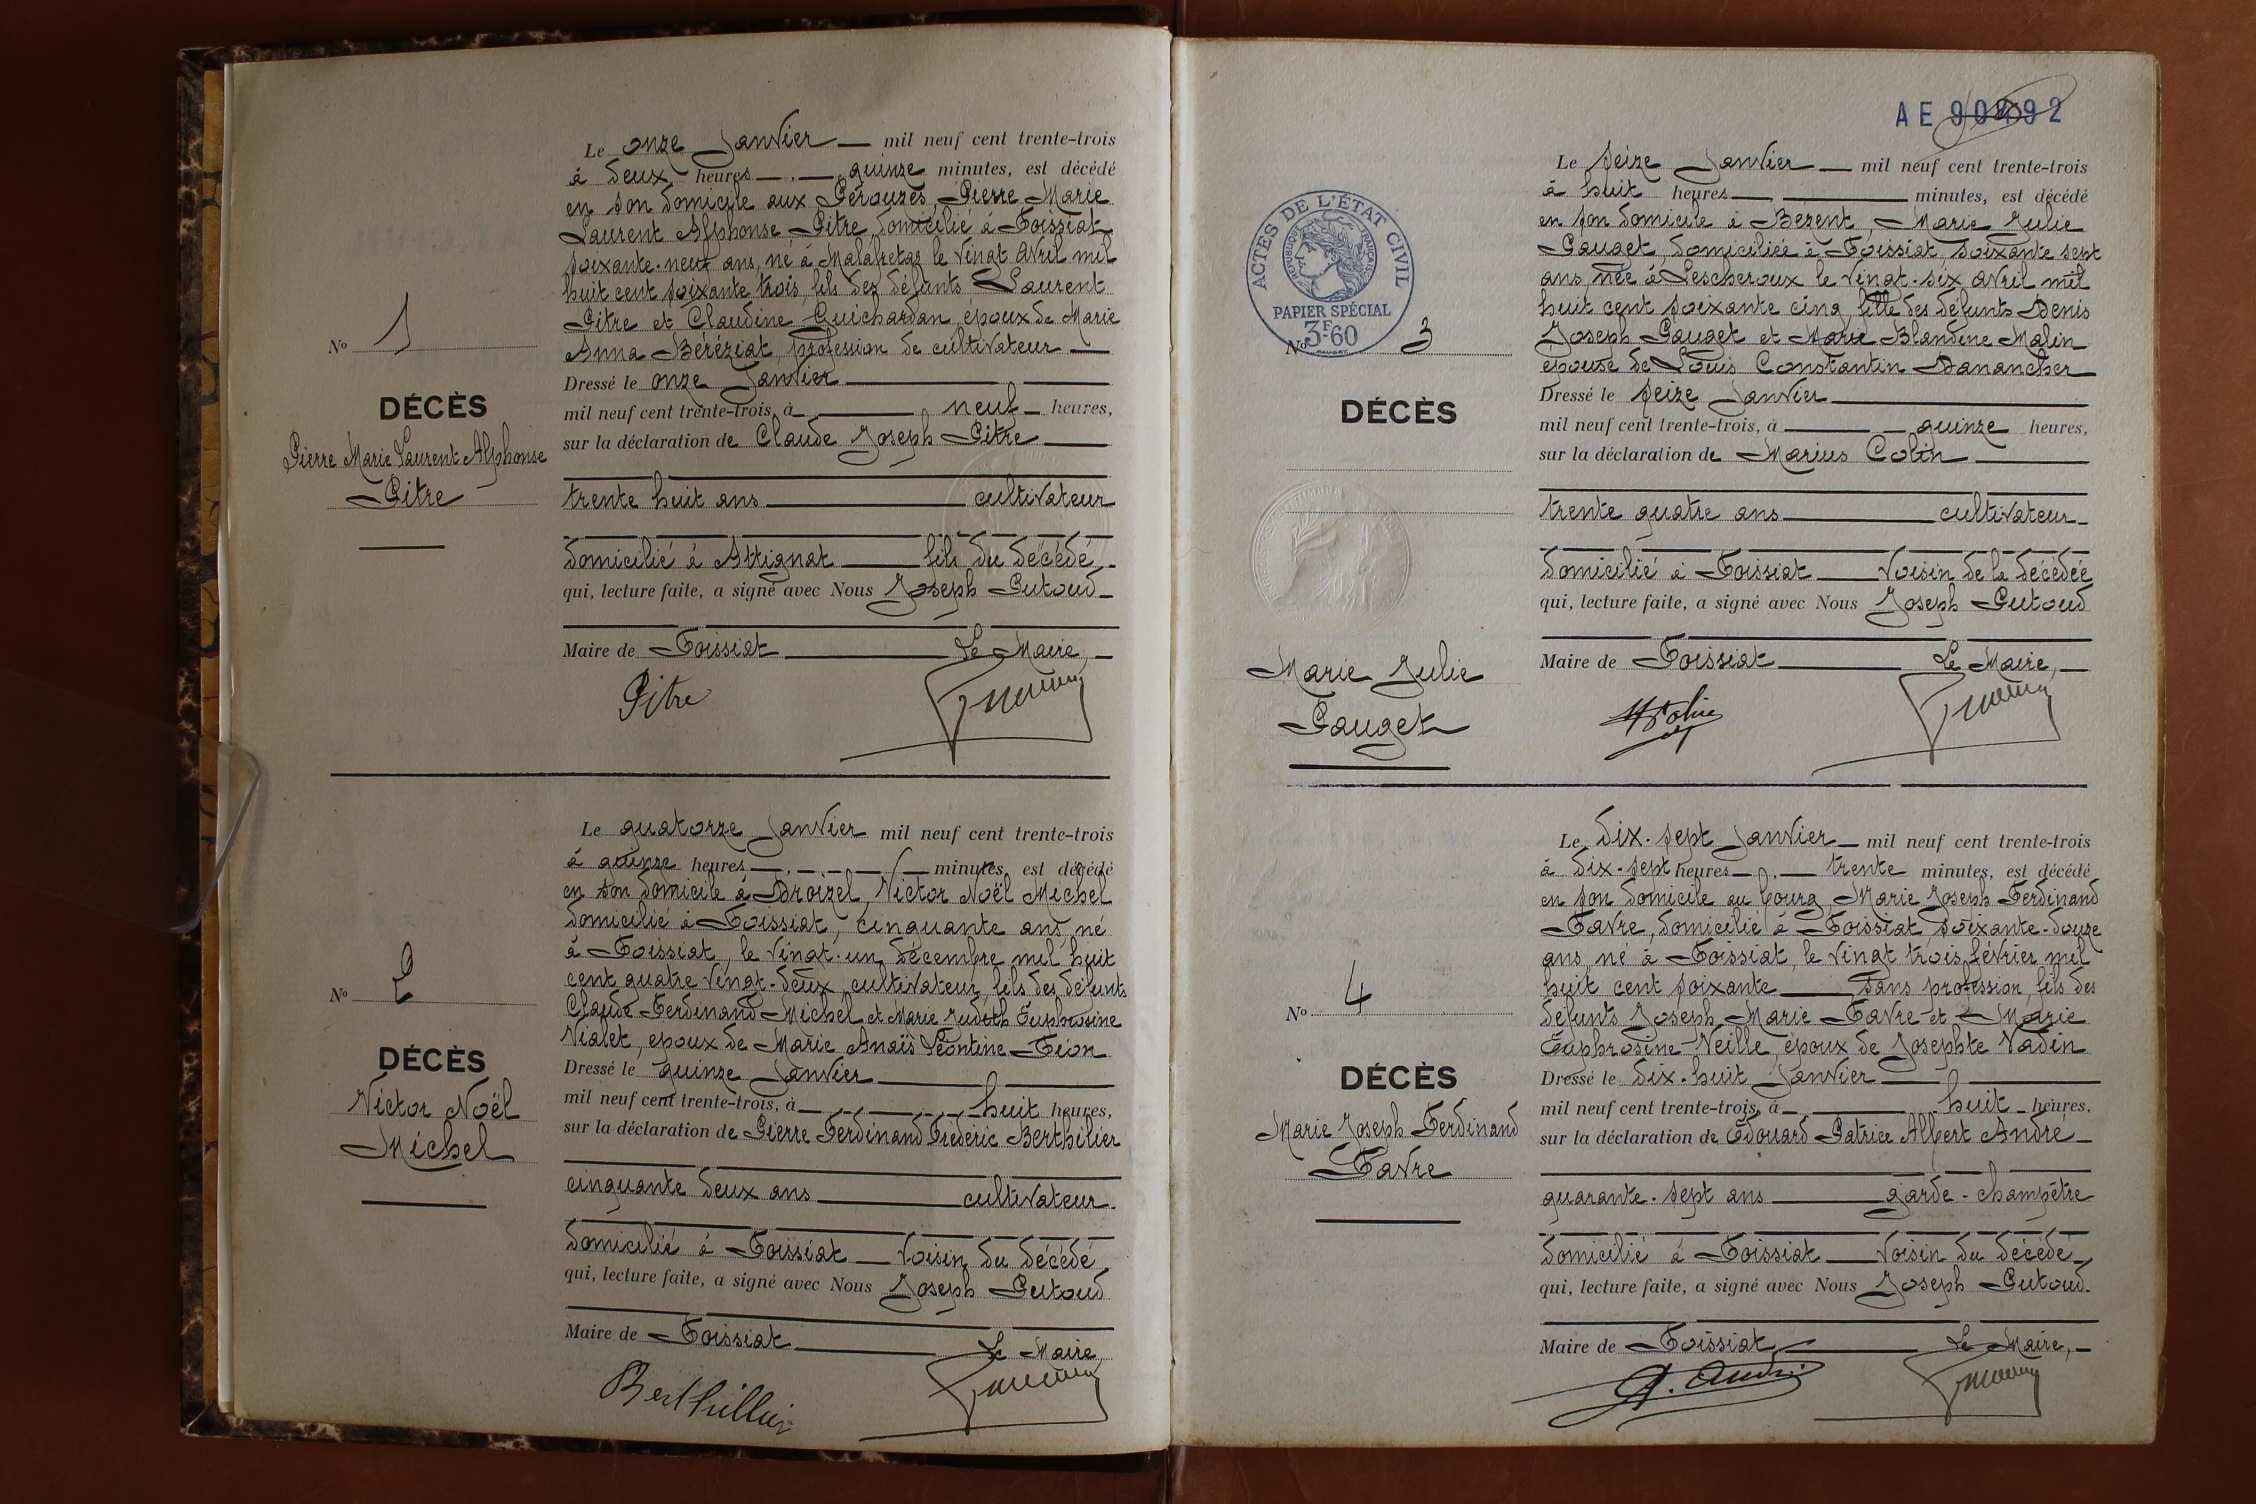 Le onze Janvier mil neuf cent trente-trois
à deux heures quinze minutes, est décédé
en son domicile aux Pérouzes, Pierre Marie
Laurent Alphonse Pitre, domicilié à Foissiat
soixante-neuf ans, né à Malafretaz le vingt avril mil
huit cent soixante trois, fils des défunts Laurent
Pitre et Claudine Guichardan, époux de Marie
Anna Béréziat, profession de cultivateur
Dressé le onze Janvier
mil neuf cent trente-trois, à neuf heures,
sur la déclaration de Claude Joseph Pitre
trente huit ans cultivateur
domicilié à Attignat fils du décédé,
qui, lecture faite, a signé avec Nous Joseph Putoud
Maire de Foissiat Le Maire,
Pitre
No 1
DÉCÈS
Pierre Marie Laurent Alphonse
Pitre
Le quatorze Janvier mil neuf cent trente-trois
à quinze heures minutes, est décédé
en son domicile à Droizel, Victor Noël Michel
domicilié à Foissiat, cinquante ans, né
à Foissiat, le vingt-un décembre mil huit
cent quatre vingt-deux, cultivateur, fils des défunts
Claude Ferdinand Michel et Marie Judith Euphrosine
Vialet, époux de Marie Anaïs Léontine Fion
Dressé le quinze Janvier
mil neuf cent trente-trois, à huit heures,
sur la déclaration de Pierre Ferdinand Frédéric Berthilier
cinquante deux ans cultivateur
domicilié à Foissiat Voisin du décédé,
qui, lecture faite, a signé avec Nous Joseph Putoud
Maire de Foissiat Le Maire,
Berthillier
No 2
DÉCÈS
Victor Noël
Michel
AE 90492
Le seize Janvier mil neuf cent trente-trois
à huit heures minutes, est décédé
en son domicile à Bezent, Marie Julie
Pauget, domiciliée à Foissiat, soixante sept
ans, née à Lescheroux le vingt-six avril mil
huit cent soixante cinq, fille des défunts Denis
Joseph Pauget et Marie Blandine Malin
épouse de Louis Constantin Danancher
Dressé le seize Janvier
mil neuf cent trente-trois, à quinze heures,
sur la déclaration de Marius Colin
trente quatre ans cultivateur
domicilié à Foissiat Voisin de la décédée
qui, lecture faite, a signé avec Nous Joseph Putoud
Maire de Foissiat Le Maire,
ACTES DE L'ÉTAT CIVIL
RÉPUBLIQUE FRANÇAISE
PAPIER SPÉCIAL
3F60
No 3
DÉCÈS
Marie Julie
Pauget
Le dix-sept Janvier mil neuf cent trente-trois
à dix-sept heures trente minutes, est décédé
en son domicile au bourg, Marie Joseph Ferdinand
Favre, domicilié à Foissiat, soixante-douze
ans, né à Foissiat, le vingt trois février mil
huit cent soixante sans profession, fils des
défunts Joseph Marie Favre et Marie
Euphrosine Veille, époux de Josephte Vadin
Dressé le dix-huit Janvier
mil neuf cent trente-trois, à huit heures,
sur la déclaration de Edouard Patrice Albert André
quarante-sept ans garde-champêtre
domicilié à Foissiat Voisin du décédé
qui, lecture faite, a signé avec Nous Joseph Putoud.
Maire de Foissiat Le Maire,
A. André
No 4
DÉCÈS
Marie Joseph Ferdinand
Favre